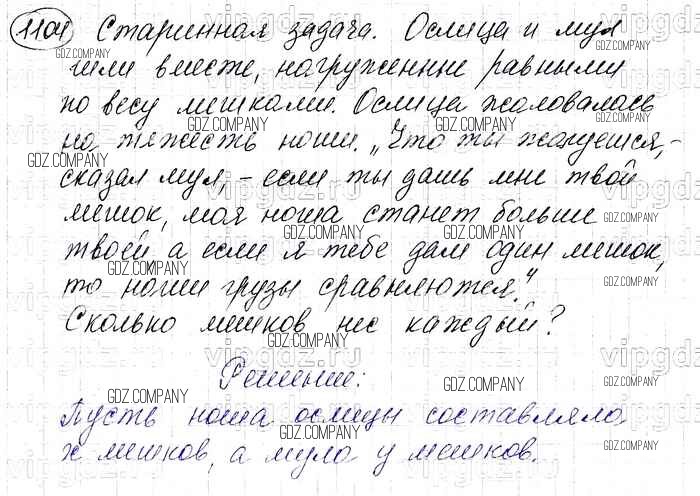 1104 Старинная задача. Ослица и мул
шли вместе, нагруженные равными
по весу мешками. Ослица жаловалась
на тяжесть ноши. „Что ты жалуешься, -
сказал мул, - если ты дашь мне твой
мешок, моя ноша станет больше
твоей а если я тебе дам один мешок,
то ноши грузы сравняются."
Сколько мешков нес каждый?
Решение:
Пусть ноша ослицы составляла
х мешков, а мула у мешков.
GDZ.COMPANY
vipgdz.ru